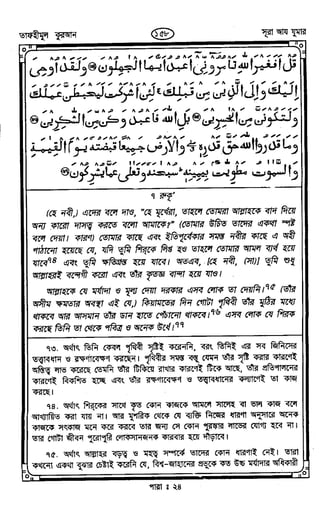 তাফহীমুল কুরআন
১৫৮
সূরা আয যুমার
قُلْ اَفَغَيْرَ اللّٰهِ تَاْمُرُوْٓنِّيْٓ اَعْبُدُ اَيُّهَا الْجٰهِلُوْنَ ۞ وَلَقَدْ اُوْحِيَ
اِلَيْكَ وَاِلَى الَّذِيْنَ مِنْ قَبْلِكَ ۚ لَئِنْ اَشْرَكْتَ لَيَحْبَطَنَّ عَمَلُكَ
وَلَتَكُوْنَنَّ مِنَ الْخٰسِرِيْنَ ۞ بَلِ اللّٰهَ فَاعْبُدْ وَكُنْ مِّنَ الشّٰكِرِيْنَ ۞
وَمَا قَدَرُوا اللّٰهَ حَقَّ قَدْرِهٖ ۖ وَالْاَرْضُ جَمِيْعًا قَبْضَتُهٗ يَوْمَ الْقِيٰمَةِ
وَالسَّمٰوٰتُ مَطْوِيّٰتٌۢ بِيَمِيْنِهٖ ؕ سُبْحٰنَهٗ وَتَعٰلٰى عَمَّا يُشْرِكُوْنَ ۞
৭ রুকূ'
(হে নবী,) এদের বলে দাও, "হে মূর্খেরা, তাহলে তোমরা আল্লাহকে বাদ দিয়ে
অন্য কারো দাসত্ব করতে বলো আমাকে?" (তোমার উচিত তাদের একথা স্পষ্ট
বলে দেয়া। কারণ) তোমার কাছে এবং ইতিপূর্বেকার সমস্ত নবীর কাছে এ অহী
পাঠানো হয়েছে যে, যদি তুমি শির্কে লিপ্ত হও তাহলে তোমার আমল ব্যর্থ হয়ে
যাবে৭৪ এবং তুমি ক্ষতিগ্রস্ত হয়ে যাবে। অতএব, (হে নবী, (সা)) তুমি শুধু
আল্লাহরই বন্দেগী করো এবং তাঁর কৃতজ্ঞ বান্দা হয়ে যাও।
আল্লাহকে যে মর্যাদা ও মূল্য দেয়া দরকার এসব লোক তা দেয়নি।৭৫ (তাঁর
অসীম ক্ষমতার অবস্থা এই যে,) কিয়ামতের দিন গোটা পৃথিবী তাঁর মুঠির মধ্যে
থাকবে আর আসমান তাঁর ডান হাতে পেঁচানো থাকবে।৭৬ এসব লোক যে শিরক
করছে তিনি তা থেকে পবিত্র ও অনেক উর্ধে।৭৭
৭৩. অর্থাৎ তিনি কেবল পৃথিবী সৃষ্টি করেননি, বরং তিনিই এর সব জিনিসের
তত্ত্বাবধান ও রক্ষণাবেক্ষণ করছেন। পৃথিবীর সমস্ত বস্তু যেমন তাঁর সৃষ্টি করার কারণেই
অস্তিত্ব লাভ করেছে তেমনি তাঁর টিকিয়ে রাখার কারণেই টিকে আছে, তাঁর প্রতিপালনের
কারণেই বিকশিত হচ্ছে এবং তাঁর রক্ষণাবেক্ষণ ও তত্ত্বাবধানের কল্যাণেই তা কাজ
করছে।
৭৪. অর্থাৎ শিরকের সাথে কৃত কোন কাজকে আমলে সালেহ বা ভাল কাজ বলে
আখ্যায়িত করা যায় না। আর মুশরিক থেকে যে ব্যক্তি নিজের ধারণা অনুসারে অনেক
কাজকে সৎকাজ মনে করে করবে তার জন্য সে কোন পুরস্কার লাভের যোগ্য হবে না।
তার গোটা জীবন পুরোপুরি লোকসানজনক কারবার হয়ে দাঁড়াবে।
৭৫. অর্থাৎ আল্লাহর বড়ত্ব ও মহত্ব সম্পর্কে তাদের কোন ধারণাই নেই। তারা
কখনো একথা বুঝার চেষ্টাই করেনি যে, বিশ্ব-জাহানের প্রভুকে কত উচ্চ মর্যাদার অধিকারী
পারা : ২৪